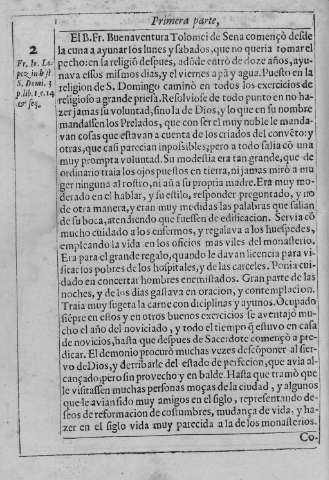 Primera parte,
2
Fr. Iu. Lo-
pez in hist.
S. Domi. 3
p. lib. 1. c. 14
& seq.
El B. Fr. Buenaventura Tolomei de Sena començò desde
la cuna a ayunar los lunes y sabados, que no queria tomar el
pecho: en la religiõ despues, adõde entrò de doze años, ayu-
nava essos mismos dias, y el viernes a pã y agua. Puesto en la
religion de S. Domingo caminò en todos los exercicios de
religioso a grande priesa. Resolviose de todo punto en no ha-
zer jamas su voluntad, sino la de Dios, y lo que en su nombre
mandassen los Prelados, que con ser el muy noble le manda-
van cosas que estavan a cuenta de los criados del convẽto: y
otras, que casi parecian inpossibles; pero a todo salia cõ una
muy prompta voluntad. Su modestia era tan grande, que de
ordinario traia los ojos puestos en tierra, ni jamas mirò a mu
ger ninguna al rostro, ni aũ a su propria madre. Era muy mo-
derado en el hablar, y su estilo, responder preguntado, y no
de otra manera, y eran muy medidas las palabras que salian
de su boca, atendiendo que fuessen de edificacion. Servia cõ
mucho cuidado a los enfermos, y regalava a los huespedes,
empleando la vida en los oficios mas viles del monasterio.
Era para el grande regalo, quando le davan licencia para vi-
sitar los pobres de los hospitales, y de las carceles. Ponia cui-
dado en concertar hombres enemistados. Gran parte de las
noches, y de los dias gastava en oracion, y contemplacion.
Traia muy sugeta la carne con diciplinas y ayunos. Ocupado
siẽpre en estos y en otros buenos exercicios se aventajò mu-
cho el año del noviciado, y todo el tiempo q̃ estuvo en casa
de novicios, hasta que despues de Sacerdote començò a pre-
dicar. El demonio procurò muchas vezes descõponer al sier-
vo de Dios, y derribarle del estado de perfecion, que avia al-
cançado; pero sin provecho y en balde. Hasta que tramò que
le visitassen muchas personas moças de la ciudad, y algunos
que le avian sido muy amigos en el siglo, representando de-
seos de reformacion de costumbres, mudança de vida, y ha-
zer en el siglo vida muy parecida a la de los monasterios.
Co-